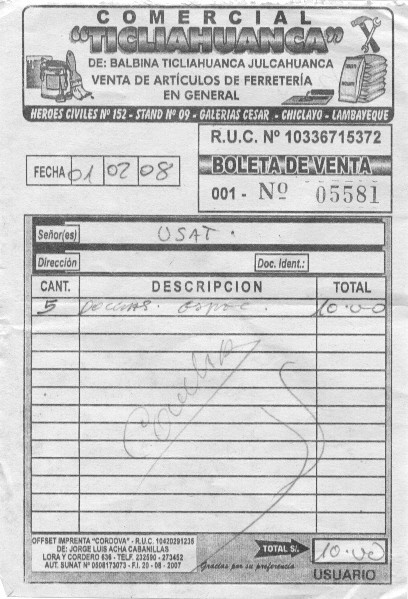 COMERCIAL
"TICLIAHUANCA"
DE: BALBINA TICLIAHUANCA JULCAHUANCA
VENTA DE ARTÍCULOS DE FERRETERÍA
EN GENERAL
HEROES CIVILES Nº 152 - STAND Nº 09 - GALERIAS CESAR - CHICLAYO - LAMBAYEQUE
R.U.C. Nº 10336715372
BOLETA DE VENTA
001 - Nº 05581
FECHA 01 02 08
Señor(es) USAT.
Dirección Doc. Ident.:
CANT. DESCRIPCION TOTAL
5 10.00
OFFSET IMPRENTA "CORDOVA" - R.U.C. 10420291235
DE: JORGE LUIS ACHA CABANILLAS
LORA Y CORDERO 636 - TELF. 232590 - 273452
AUT. SUNAT Nº 0508173073 - F.I. 20 - 08 - 2007
Gracias por su preferencia
TOTAL S/. 10.00
USUARIO